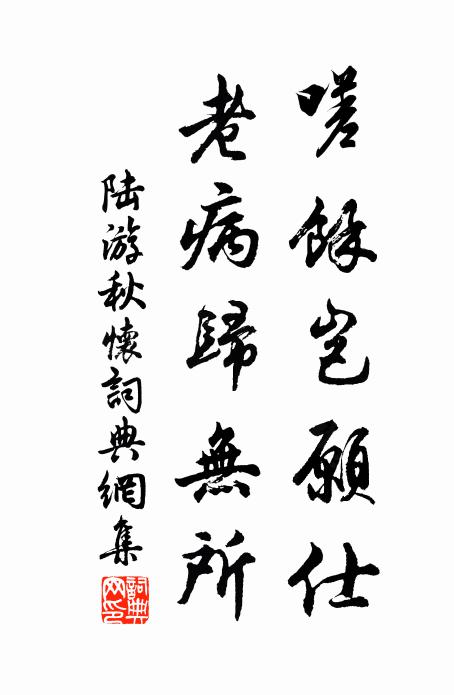 嗟餘豈願仕
老病歸無所
陆游秋懷詞典網集
詞典網印